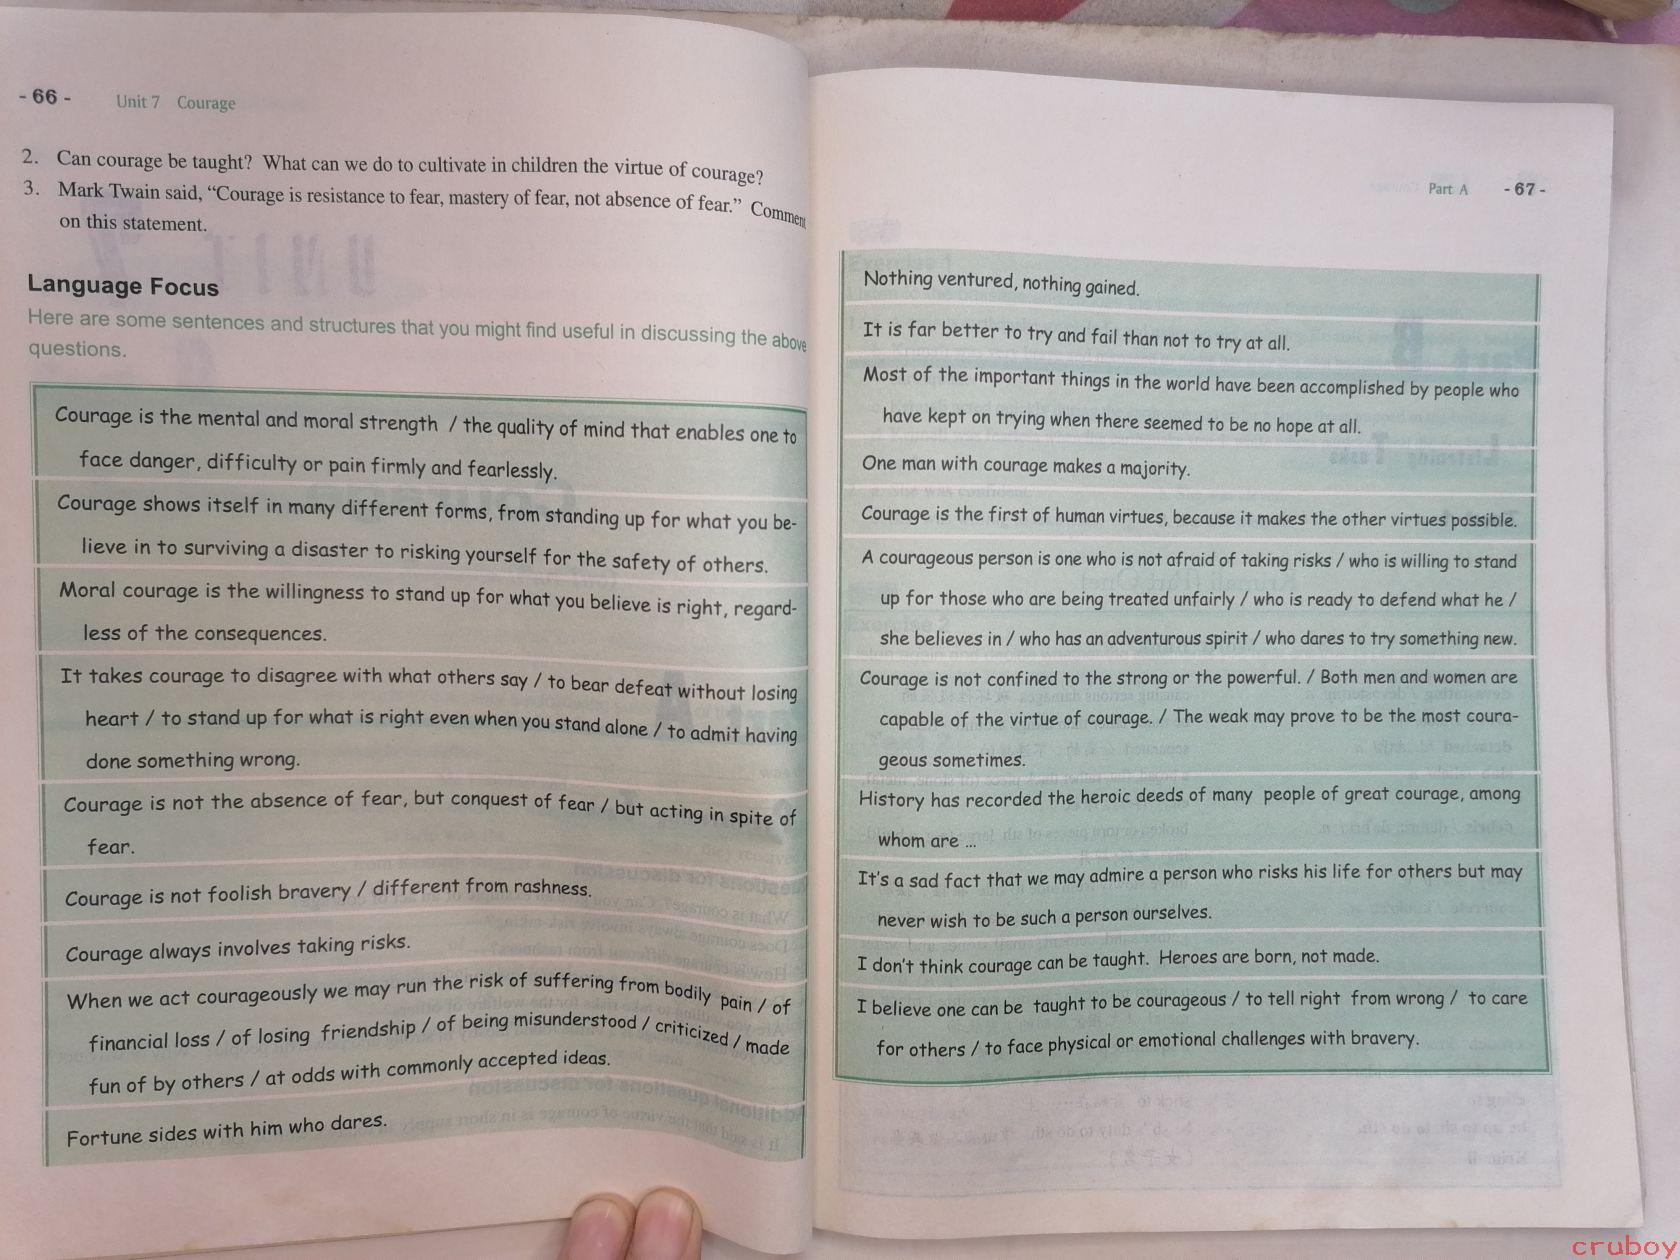 - 66 -
Unit 7 Courage
2. Can courage be taught? What can we do to cultivate in children the virtue of courage?
3. Mark Twain said, “Courage is resistance to fear, mastery of fear, not absence of fear.” Comment
on this statement.
Language Focus
Here are some sentences and structures that you might find useful in discussing the above
questions.
Courage is the mental and moral strength / the quality of mind that enables one to
face danger, difficulty or pain firmly and fearlessly.
Courage shows itself in many different forms, from standing up for what you be-
lieve in to surviving a disaster to risking yourself for the safety of others.
Moral courage is the willingness to stand up for what you believe is right, regard-
less of the consequences.
It takes courage to disagree with what others say / to bear defeat without losing
heart / to stand up for what is right even when you stand alone / to admit having
done something wrong.
Courage is not the absence of fear, but conquest of fear / but acting in spite of
fear.
Courage is not foolish bravery / different from rashness.
Courage always involves taking risks.
When we act courageously we may run the risk of suffering from bodily pain / of
financial loss / of losing friendship / of being misunderstood / criticized / made
fun of by others / at odds with commonly accepted ideas.
Fortune sides with him who dares.
Part A
- 67 -
Nothing ventured, nothing gained.
It is far better to try and fail than not to try at all.
Most of the important things in the world have been accomplished by people who
have kept on trying when there seemed to be no hope at all.
One man with courage makes a majority.
Courage is the first of human virtues, because it makes the other virtues possible.
A courageous person is one who is not afraid of taking risks / who is willing to stand
up for those who are being treated unfairly / who is ready to defend what he /
she believes in / who has an adventurous spirit / who dares to try something new.
Courage is not confined to the strong or the powerful. / Both men and women are
capable of the virtue of courage. / The weak may prove to be the most coura-
geous sometimes.
History has recorded the heroic deeds of many people of great courage, among
whom are ...
It's a sad fact that we may admire a person who risks his life for others but may
never wish to be such a person ourselves.
I don't think courage can be taught. Heroes are born, not made.
I believe one can be taught to be courageous / to tell right from wrong / to care
for others / to face physical or emotional challenges with bravery.
cruboy